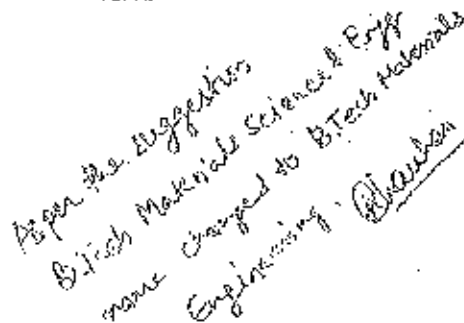 As per the suggestion
B.Tech Materials Science & Engg
name changed to B.Tech Materials
Engineering.